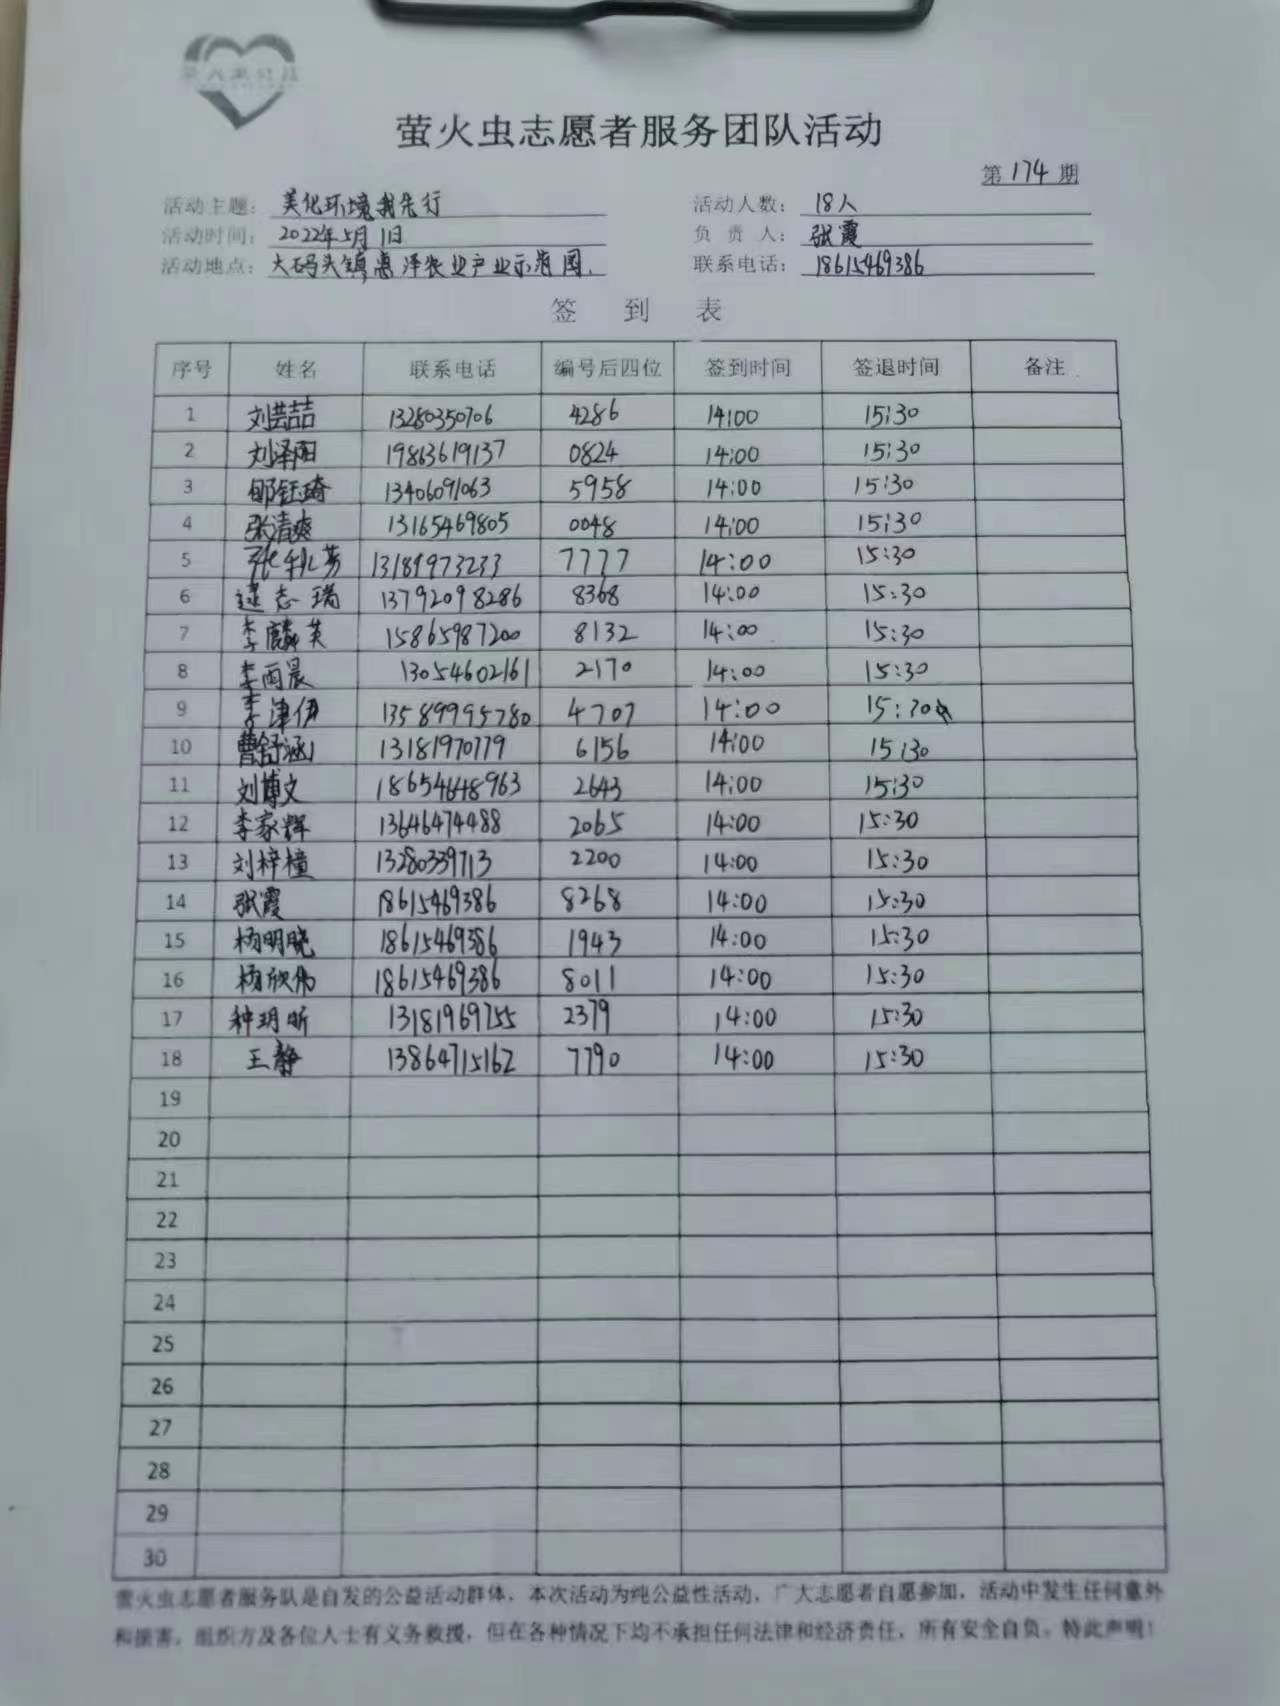 萤火虫志愿者服务团队活动
第 174 期
活动主题: 美化环境我先行 活动人数: 18人
活动时间: 2022年5月1日 负责人: 张霞
活动地点: 大码头镇惠泽农业产业示范园. 联系电话: 18615469386
签 到 表
序号 姓名 联系电话 编号后四位 签到时间 签退时间 备注
1 刘喆喆 13280350706 4286 14:00 15:30
2 刘泽阳 19863619137 0824 14:00 15:30
3 邮钰琦 13406091063 5958 14:00 15:30
4 张清爽 13165469805 0048 14:00 15:30
5 张 芳 13189973233 7777 14:00 15:30
6 逯志瑞 13792098286 8368 14:00 15:30
7 李麟芙 15865987200 8132 14:00 15:30
8 李雨晨 13054602161 2170 14:00 15:30
9 李津伊 13589995780 4707 14:00 15:30
10 曹舒涵 13181970779 6156 14:00 15:30
11 刘博文 18654648963 2643 14:00 15:30
12 李家辉 13646474488 2065 14:00 15:30
13 刘梓橦 13280339713 2200 14:00 15:30
14 张霞 18615469386 8268 14:00 15:30
15 杨明晓 18615469386 1943 14:00 15:30
16 杨欣伟 18615469386 8011 14:00 15:30
17 种玥昕 13181969755 2379 14:00 15:30
18 王静 13864715162 7790 14:00 15:30
19
20
21
22
23
24
25
26
27
28
29
30
萤火虫志愿者服务队是自发的公益活动群体，本次活动为纯公益性活动，广大志愿者自愿参加，活动中发生任何意外
和损害，组织方及各位人士有义务救援，但在各种情况下均不承担任何法律和经济责任，所有安全自负。特此声明！